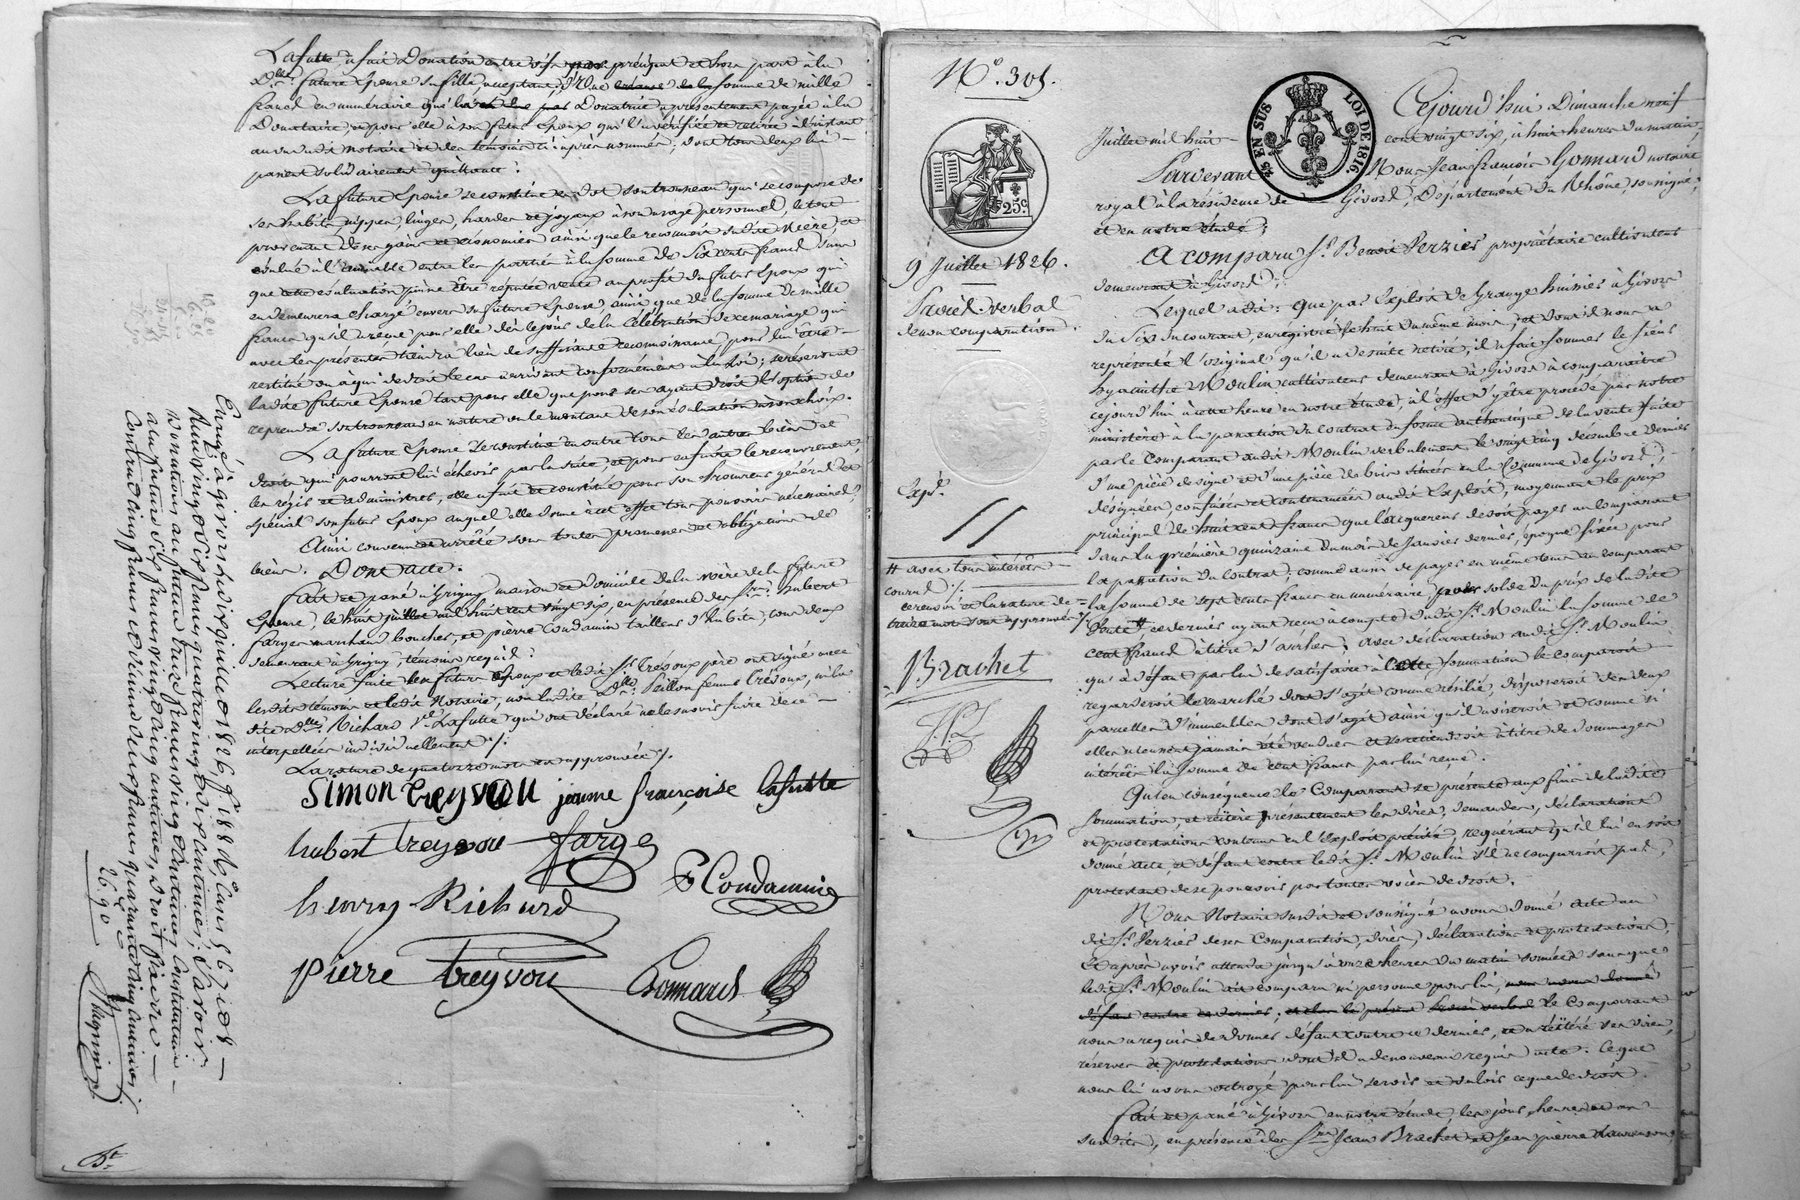 Lafutte, a fait Donation entre vifs par préciput et hors part à la
Dlle. future Epouse sa fille, acceptant, D'une somme de mille
francs en numéraire que la Donatrice a présentement payée à la
Donataire, et pour elle à son futur Epoux qui l'a vérifiée et retirée à l'instant
au vu dudit notaire et des témoins ci-après nommés; dont tous deux la
passent solidairement quittance.
La future Epouse se constitue en dot son trousseau qui se compose de
ses habits, nippes, linges, hardes et joyaux à son usage personnel, le tout
provenant de ses gains et économies ainsi que le reconnait sadite Mère, et
évalué à l'amiable entre les parties à la somme de Six cents francs sans
que cette évaluation puisse être réputée vente au profit du futur Epoux qui
en demeurera chargé envers sa future Epouse ainsi que de la somme de mille
francs qu'il a reçue pour elle dès le jour de la célébration de ce mariage qui
avec les présentes tiendra lieu de suffisante reconnaissance pour lui être
restitué ou à qui de droit le cas arrivant conformément à la loi; se réservant
ladite future Epouse tant pour elle que pour ses ayant droit l'option de
reprendre son trousseau en nature ou le montant de son évaluation à son choix.
La future Epouse se constitue en outre tous les autres biens et
droits qui pourront lui échoir par la suite et pour en faire le recouvrement,
les régir et administrer, elle a fait et constitué pour son procureur général et
spécial son futur Epoux auquel elle donne à cet effet tous pouvoirs nécessaires.
Ainsi convenu et arrêté sous toutes promesses et obligations de
biens. Dont acte.
Fait et passé à Grigny, maison et domicile de la mère de la future
Epouse, le huit juillet mil huit cent vingt six, en présence des Srs. hubert
Farge marchand boucher, et pierre Condamin tailleur d'habits, tous deux
demeurant à Grigny, témoins requis.
Lecture faite les futurs époux et ledit Sr. Treyvoux père ont signé avec
lesdits témoins et ledit Notaire, non ladite Dlle. Seillon femme Treyvoux, ni la
dite Dlle. Richard Ve. Lafutte qui ont déclaré ne le savoir faire de ce
interpellées individuellement ./.
La rature de quatorze mots est approuvée ./.
Simon treyvou jeanne françoise lafutte
hubert treyvou farge
henry Richard P Condamin
pierre treyvou Gonnard
Enregé à givors le dix juillet 1826, fo. 188
26,90
N°. 305.
9 Juillet 1826.
Procès-verbal
de non comparution.
Expd.
# avec tous intérêts
courus ./.
ce renvoi et la rature de
treize mots sont approuvés ./.
Brachet
25 EN SUS LOI DE 1816.
25c
Cejourd'hui Dimanche neuf
Juillet mil huit cent vingt six, à huit heures du matin,
Pardevant Nous Jean françois Gonnard notaire
royal à la résidence de Givors, Département du Rhône, soussigné,
et en notre étude;
A comparu Sr. Benoit Perzier propriétaire cultivateur
demeurant à Givors;
Lequel a dit: que par Exploit de Grange huissier à Givors
du Six du courant, enregistré le huit du même mois, et dont il nous a
représenté l'original qu'il a de suite retiré, il a fait sommer le sieur
hyacinthe Moulin cultivateur demeurant à Givors à comparaitre
cejourd'hui à cette heure en notre étude, à l'effet d'y être procédé par notre
ministère à la passation du contrat en forme authentique de la vente faite
par le Comparant audit Moulin verbalement le vingt cinq décembre dernier
d'une pièce de vigne et d'une pièce de bois situées en la Commune de Givors,
désignées, confinées et contenancées audit Exploit, moyennant le prix
principal de huit cent francs que l'acquéreur devoit payer au comparant
dans la première quinzaine du mois de Janvier dernier, époque fixée pour
la passation du contrat; comme aussi de payer en même tems au comparant
la somme de sept cents francs en numéraire pour solde du prix de ladite
vente #, ce dernier ayant reçu à compte dudit Sr. Moulin la somme de
cent francs à titre d'arrhes; avec déclaration audit Sr. Moulin
qu'à défaut par lui de satisfaire à cette sommation le comparant
regarderoit le marché dont s'agit comme résilié, disposeroit des deux
parcelles d'immeubles dont s'agit ainsi qu'il aviseroit et comme si
elles n'eussent jamais été vendues et retiendroit à titre de dommages
intérêts la somme de cent francs par lui reçue.
Qu'en conséquence le Comparant se présente aux fins de ladite
sommation, et réitère présentement les dires, demandes, déclarations
et protestations contenus en l'Exploit précité, requérant qu'il lui en soit
donné acte, et défaut contre ledit Sr. Moulin s'il ne comparoit pas,
protestant de se pourvoir par toutes voies de droit.
Nous Notaire susdit et soussigné avons donné acte au
dit Sr. Perzier de sa Comparution, dires, déclarations et protestations,
Et après avoir attendu jusqu'à onze heures du matin sonnées sans que
ledit Sr. Moulin ait comparu ni personne pour lui, nous avons donné
défaut contre ce dernier, et clos le présent procès verbal le Comparant
nous a requis de donner défaut contre ce dernier, et a réitéré ses dires,
réserves et protestations dont il a de nouveau requis acte. Ce que
nous lui avons octroyé pour lui servir et valoir ce que de droit.
Fait et passé à Givors en notre étude les jour, heure et an
susdits, en présence des Srs. Jean Brachet et Jean pierre